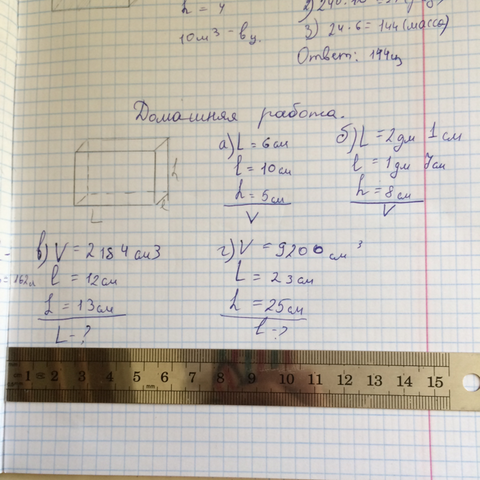 h = 4
10 м³ - вц.
3) 24 · 6 = 144 (масса)
Ответ: 144ц
Домашняя работа.
h
L
l
а) L = 6 см
l = 10 см
h = 5 см
V
б) L = 2 дм 1 см
l = 1 дм 7 см
h = 8 см
V
в) V = 2184 см3
l = 12 см
h = 13 см
L - ?
г) V = 9200 см³
L = 23 см
h = 25 см
l - ?
1 2 3 4 5 mm 6 7 8 9 10 11 12 13 14 15